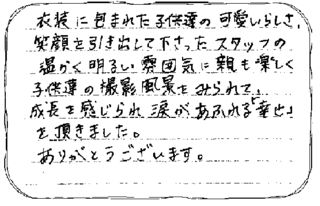 衣装に包まれた子供達の可愛いらしさ、
笑顔を引き出して下さったスタッフの
温かく明るい雰囲気に親も楽しく
子供達の撮影風景をみられて、
成長を感じられ涙があふれる「幸せ」
を頂きました。
ありがとうございます。